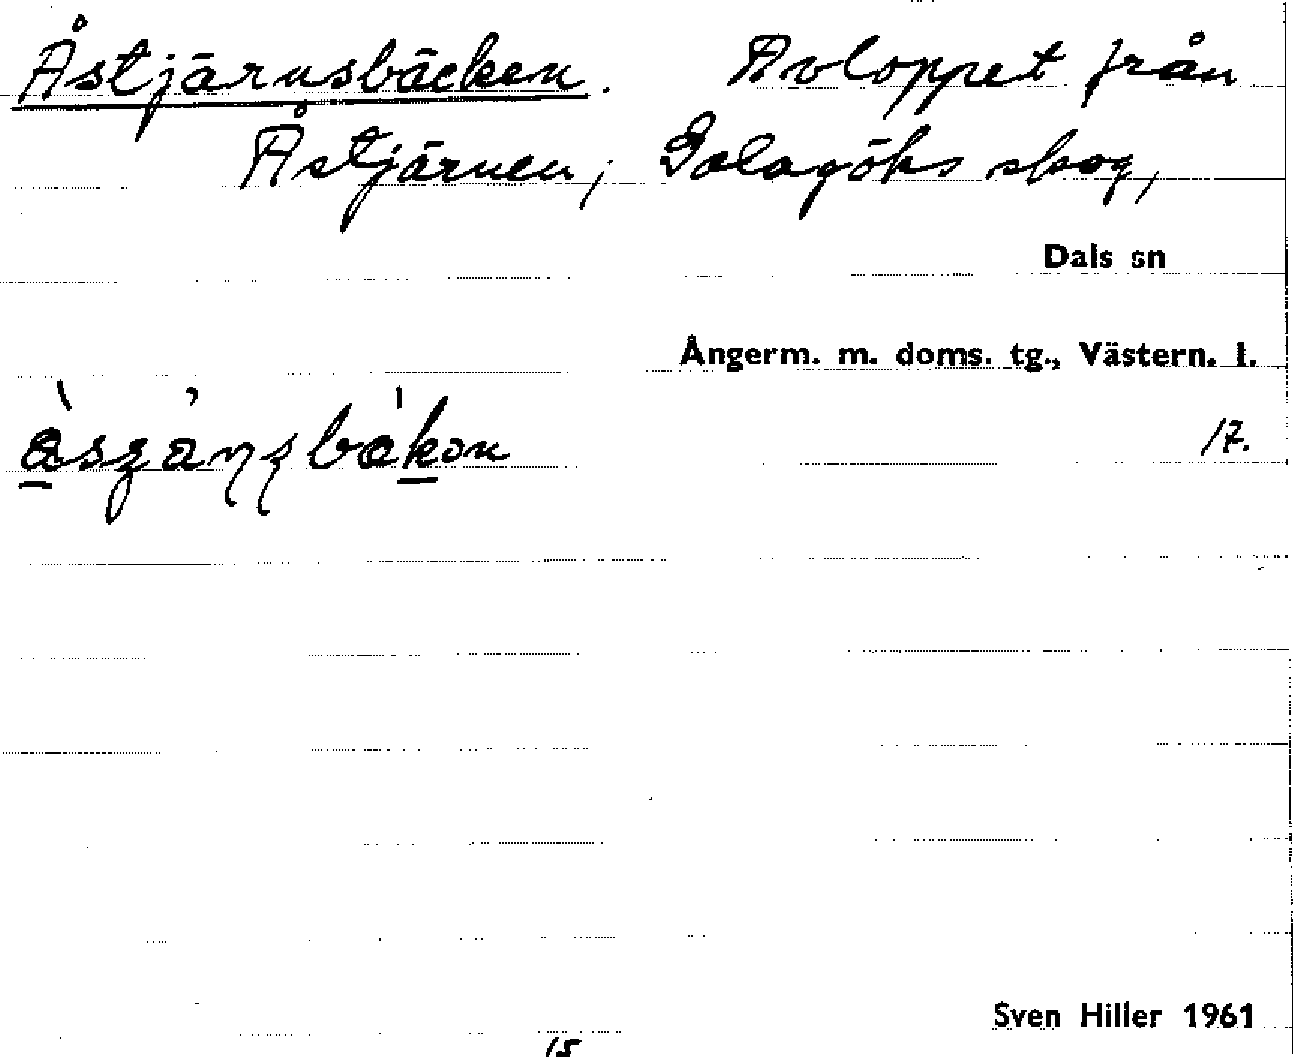 Åstjärnsbäcken. Avloppet från
Åstjärnen, Galagöks skog,
Dals sn
Ångerm. m. doms. tg., Västern. l.
17.
Sven Hiller 1961
15